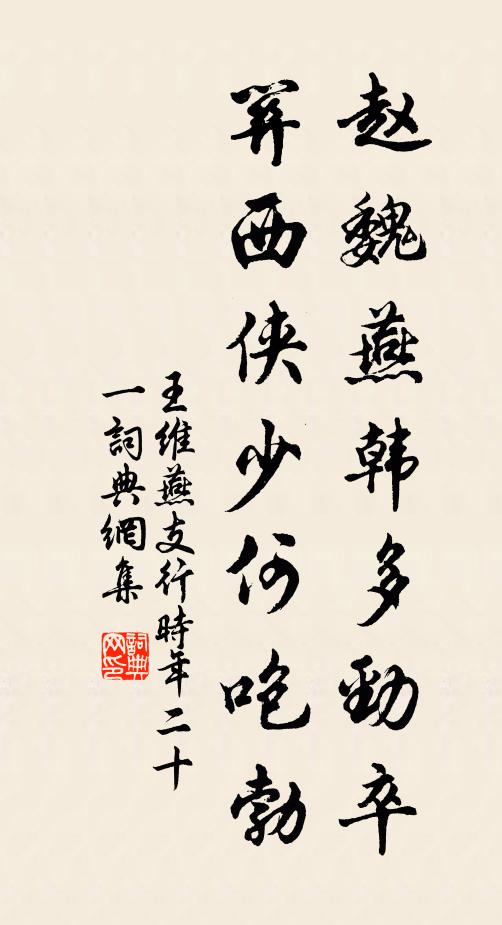 赵魏燕韩多勁卒
關西侠少何咆勃
王維燕支行時年二十
一詞典網集
詞典网印